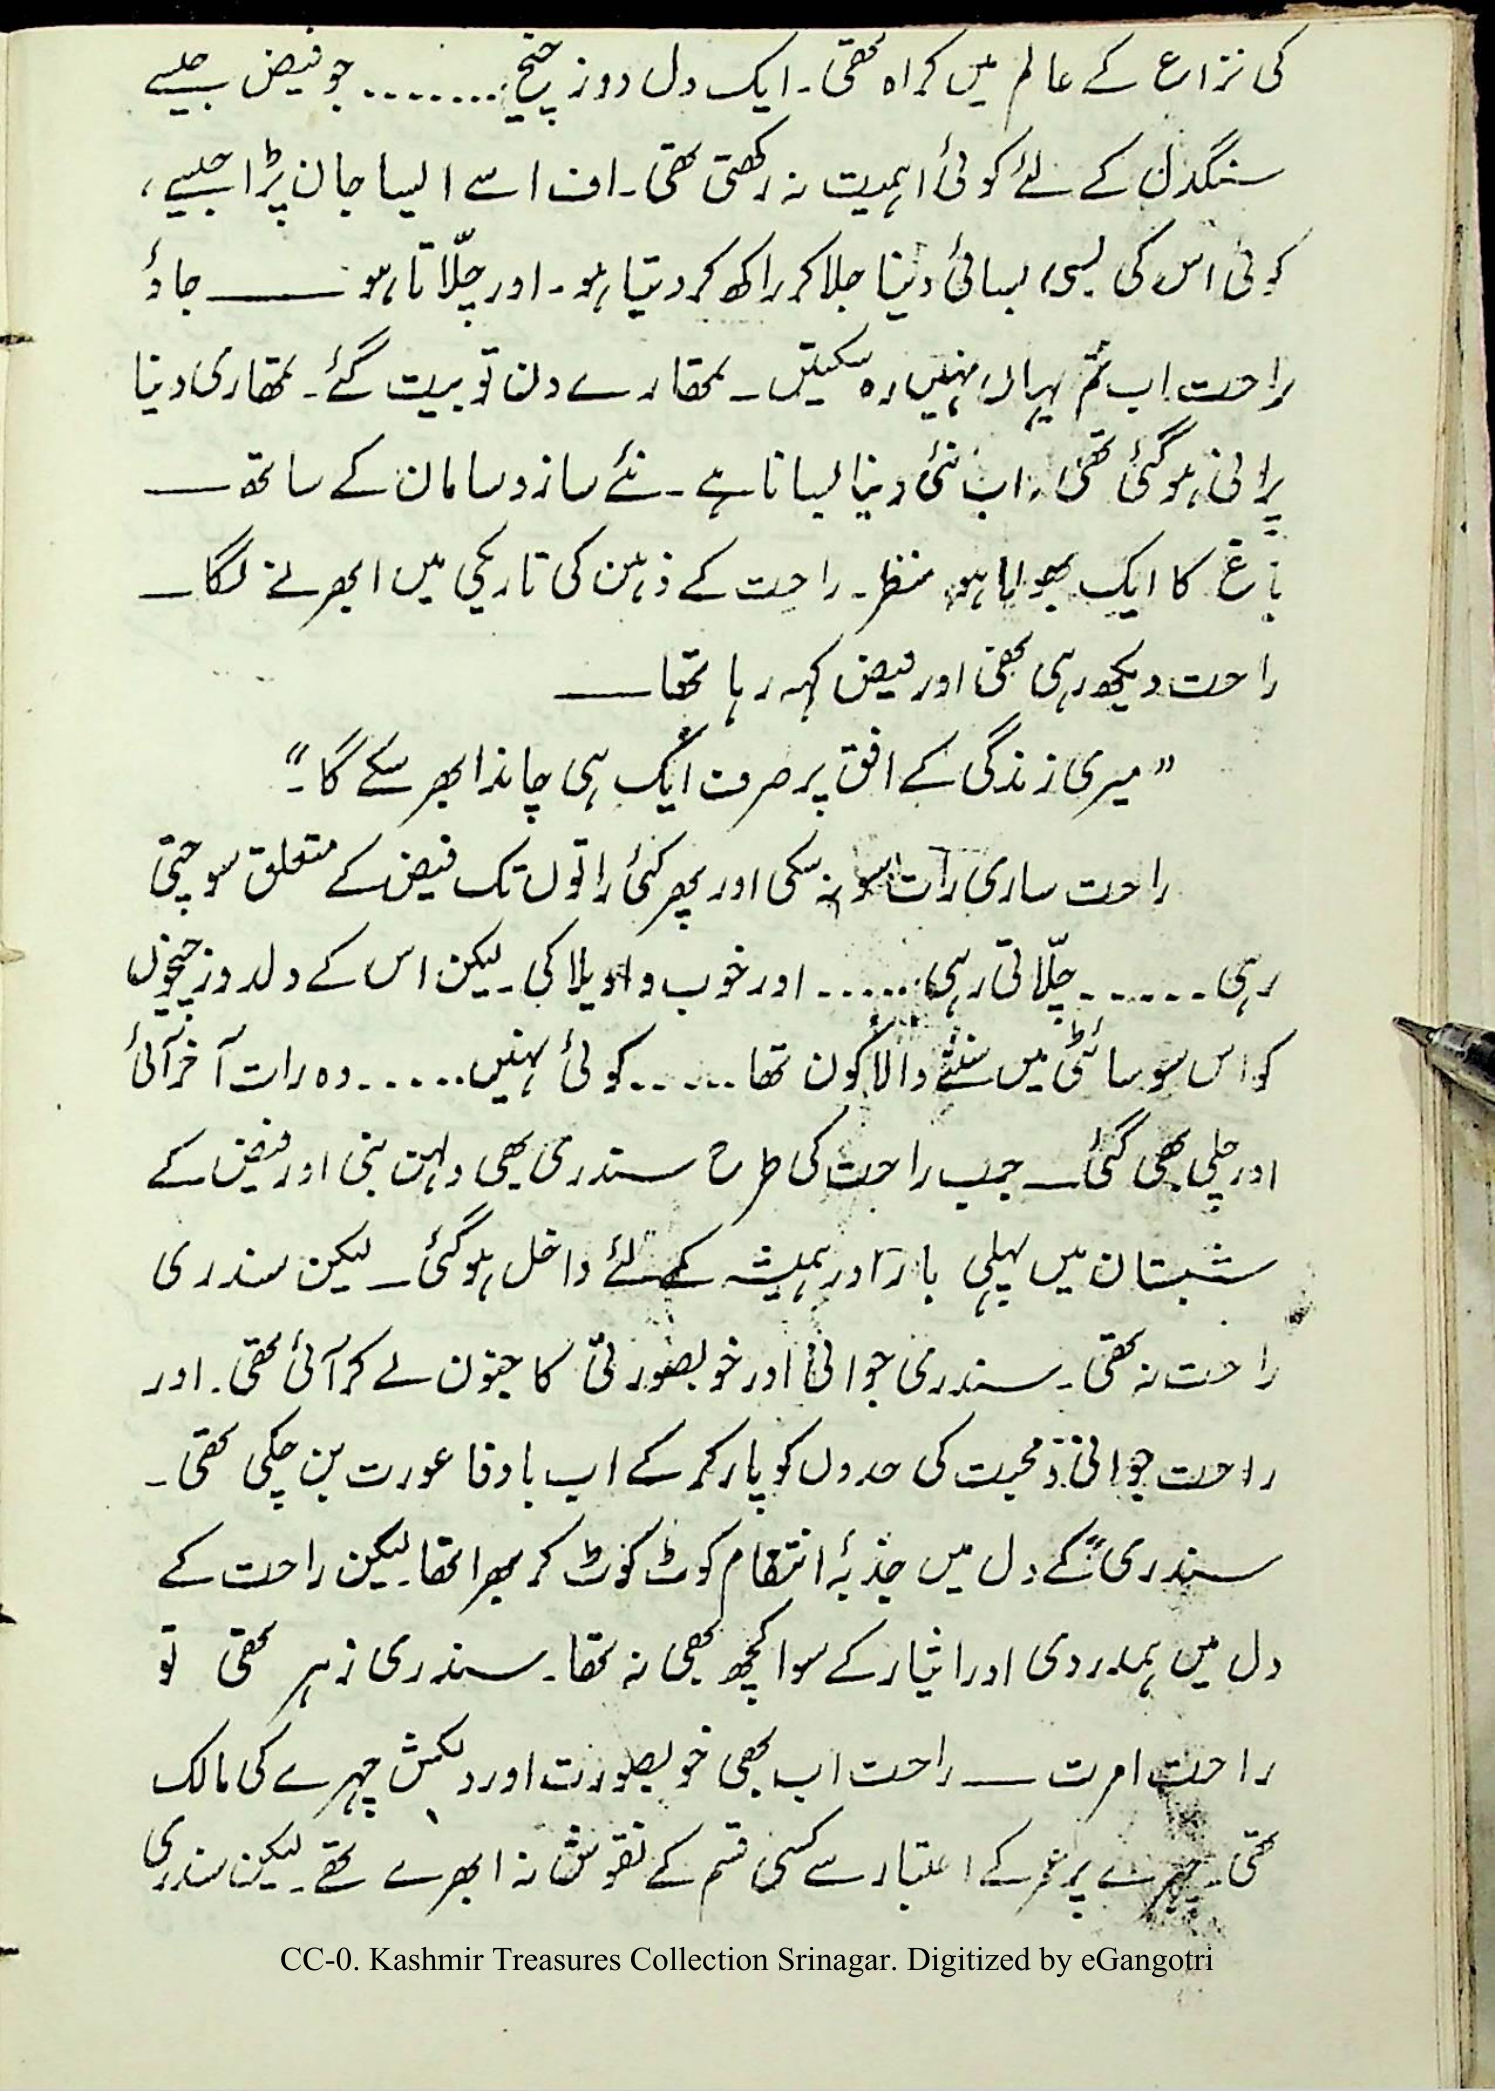 کی نزاع کے عالم میں کراہ تھی۔ ایک دل دوز چیخ ........ جو فیض جیسے
سنگدل کے لئے کوئی اہمیت نہ رکھتی تھی۔ اف اسے ایسا جان پڑا جیسے،
کوئی اس کی بسی بسائی دنیا جلا کر راکھ کر دیتا ہو۔ اور چلّاتا ہو ــــــ جاؤ
راحت اب تم یہاں نہیں رہ سکیتں۔ تمھارے دن تو بیت گئے۔ تمھاری دنیا
پرانی ہو گئی تھی، اب نئی دنیا بسانا ہے۔ نئے ساز و سامان کے ساتھ ــــــ
باغ کا ایک بھولا ہوا منظر۔ راحت کے ذہن کی تاریکی میں ابھرنے لگا ــــ
راحت دیکھ رہی تھی اور فیض کہہ رہا تھا ــــــ
”میری زندگی کے افق پر صرف ایک ہی چاند ابھر سکے گا۔“
راحت ساری رات سو نہ سکی اور پھر کئی راتوں تک فیض کے متعلق سوچتی
رہی ...... چلّاتی رہی ...... اور خوب واویلا کی۔ لیکن اس کے دلدوز چیخوں
کو اس سوسائٹی میں سننے والا کون تھا ..... کوئی نہیں ...... وہ رات آخر آئی
اور چلی بھی گئی ــــ جب راحت کی طرح سندری بھی دلہن بنی اور فیض کے
شبستان میں پہلی بار اور ہمیشہ کے لئے داخل ہو گئی ــ لیکن سندری
راحت نہ تھی۔ سندری جوانی اور خوبصورتی کا جنون لے کر آئی تھی۔ اور
راحت جوانی و محبت کی حدوں کو پار کر کے اب باوفا عورت بن چکی تھی۔
سندری کے دل میں جذبۂ انتقام کوٹ کوٹ کر بھرا تھا۔ لیکن راحت کے
دل میں ہمدردی اور ایثار کے سوا کچھ بھی نہ تھا۔ سندری زہر تھی تو
راحت امرت ــــ راحت اب بھی خوبصورت اور دلکش چہرے کی مالک
تھی۔ چہرے پر عمر کے اعتبار سے کسی قسم کے نقوش نہ ابھرے تھے۔ لیکن سندری
CC-0. Kashmir Treasures Collection Srinagar. Digitized by eGangotri